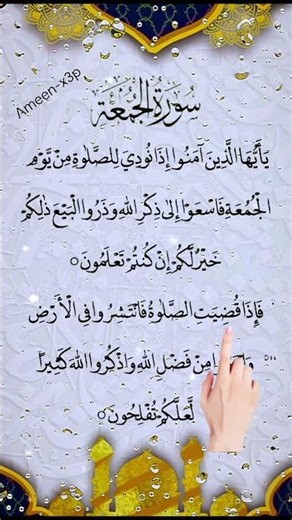 Ameen-x3p
سُورَةُ الْجُمُعَة
يَا أَيُّهَا الَّذِينَ آمَنُوا إِذَا نُودِيَ لِلصَّلٰوةِ مِنْ يَّوْمِ
الْجُمُعَةِ فَاسْعَوْا إِلىٰ ذِكْرِ اللهِ وَذَرُوا الْبَيْعَ ذٰلِكُمْ
خَيْرٌ لَّكُمْ إِنْ كُنْتُمْ تَعْلَمُونَ ○
فَإِذَا قُضِيَتِ الصَّلٰوةُ فَانْتَشِرُوا فِي الْأَرْضِ
مِنْ فَضْلِ اللهِ وَاذْكُرُوا اللهَ كَثِيرًا
لَّعَلَّكُمْ تُفْلِحُونَ ○